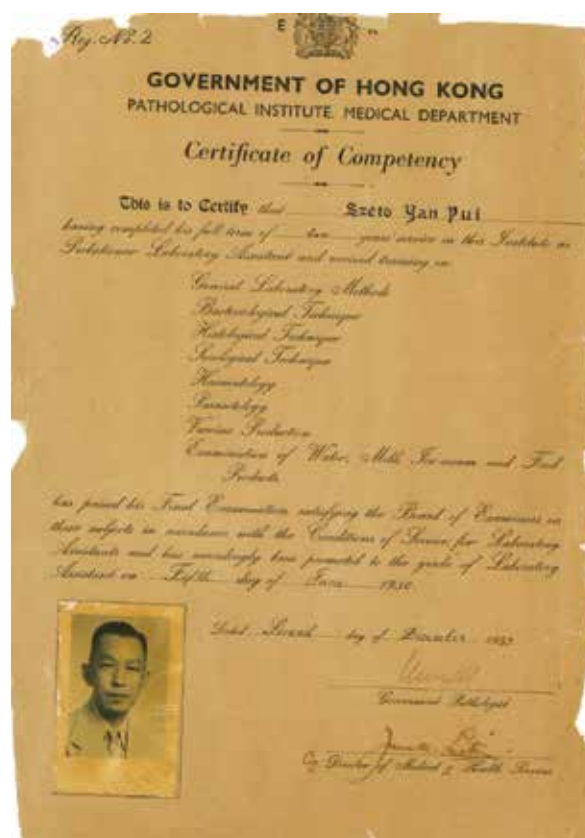 Reg. No. 2
E
GOVERNMENT OF HONG KONG
PATHOLOGICAL INSTITUTE, MEDICAL DEPARTMENT
Certificate of Competency
This is to Certify that Szeto Yan Pui
having completed his full term of two years service in this Institute as
Probationer Laboratory Assistant and received training in
General Laboratory Methods
Bacteriological Technique
Histological Technique
Serological Technique
Haematology
Parasitology
Vaccine Production
Examination of Water, Milk, Ice-cream and Food
Products
has passed his Final Examination satisfying the Board of Examiners in
these subjects in accordance with the Conditions of Service for Laboratory
Assistants and has accordingly been promoted to the grade of Laboratory
Assistant on Fifth day of June 1950.
Dated Second day of December
Government Pathologist
Director of Medical & Health Services